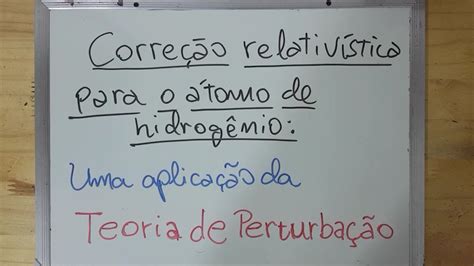 Correção relativística
para o átomo de
hidrogênio:
Uma aplicação da
Teoria de Perturbação